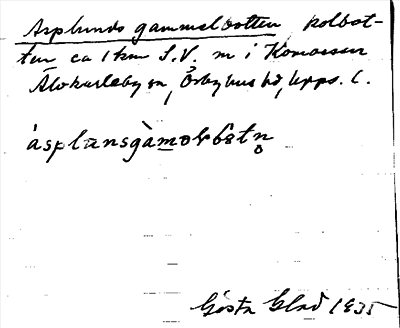 Asplunds gammelbotten kolbot-
ten ca 1 km S.V. m i
Älvkarleby sn, Örbyhus hd, Upps. l.
ásplunsgàməlbòtn̥
Gösta Glad 1935